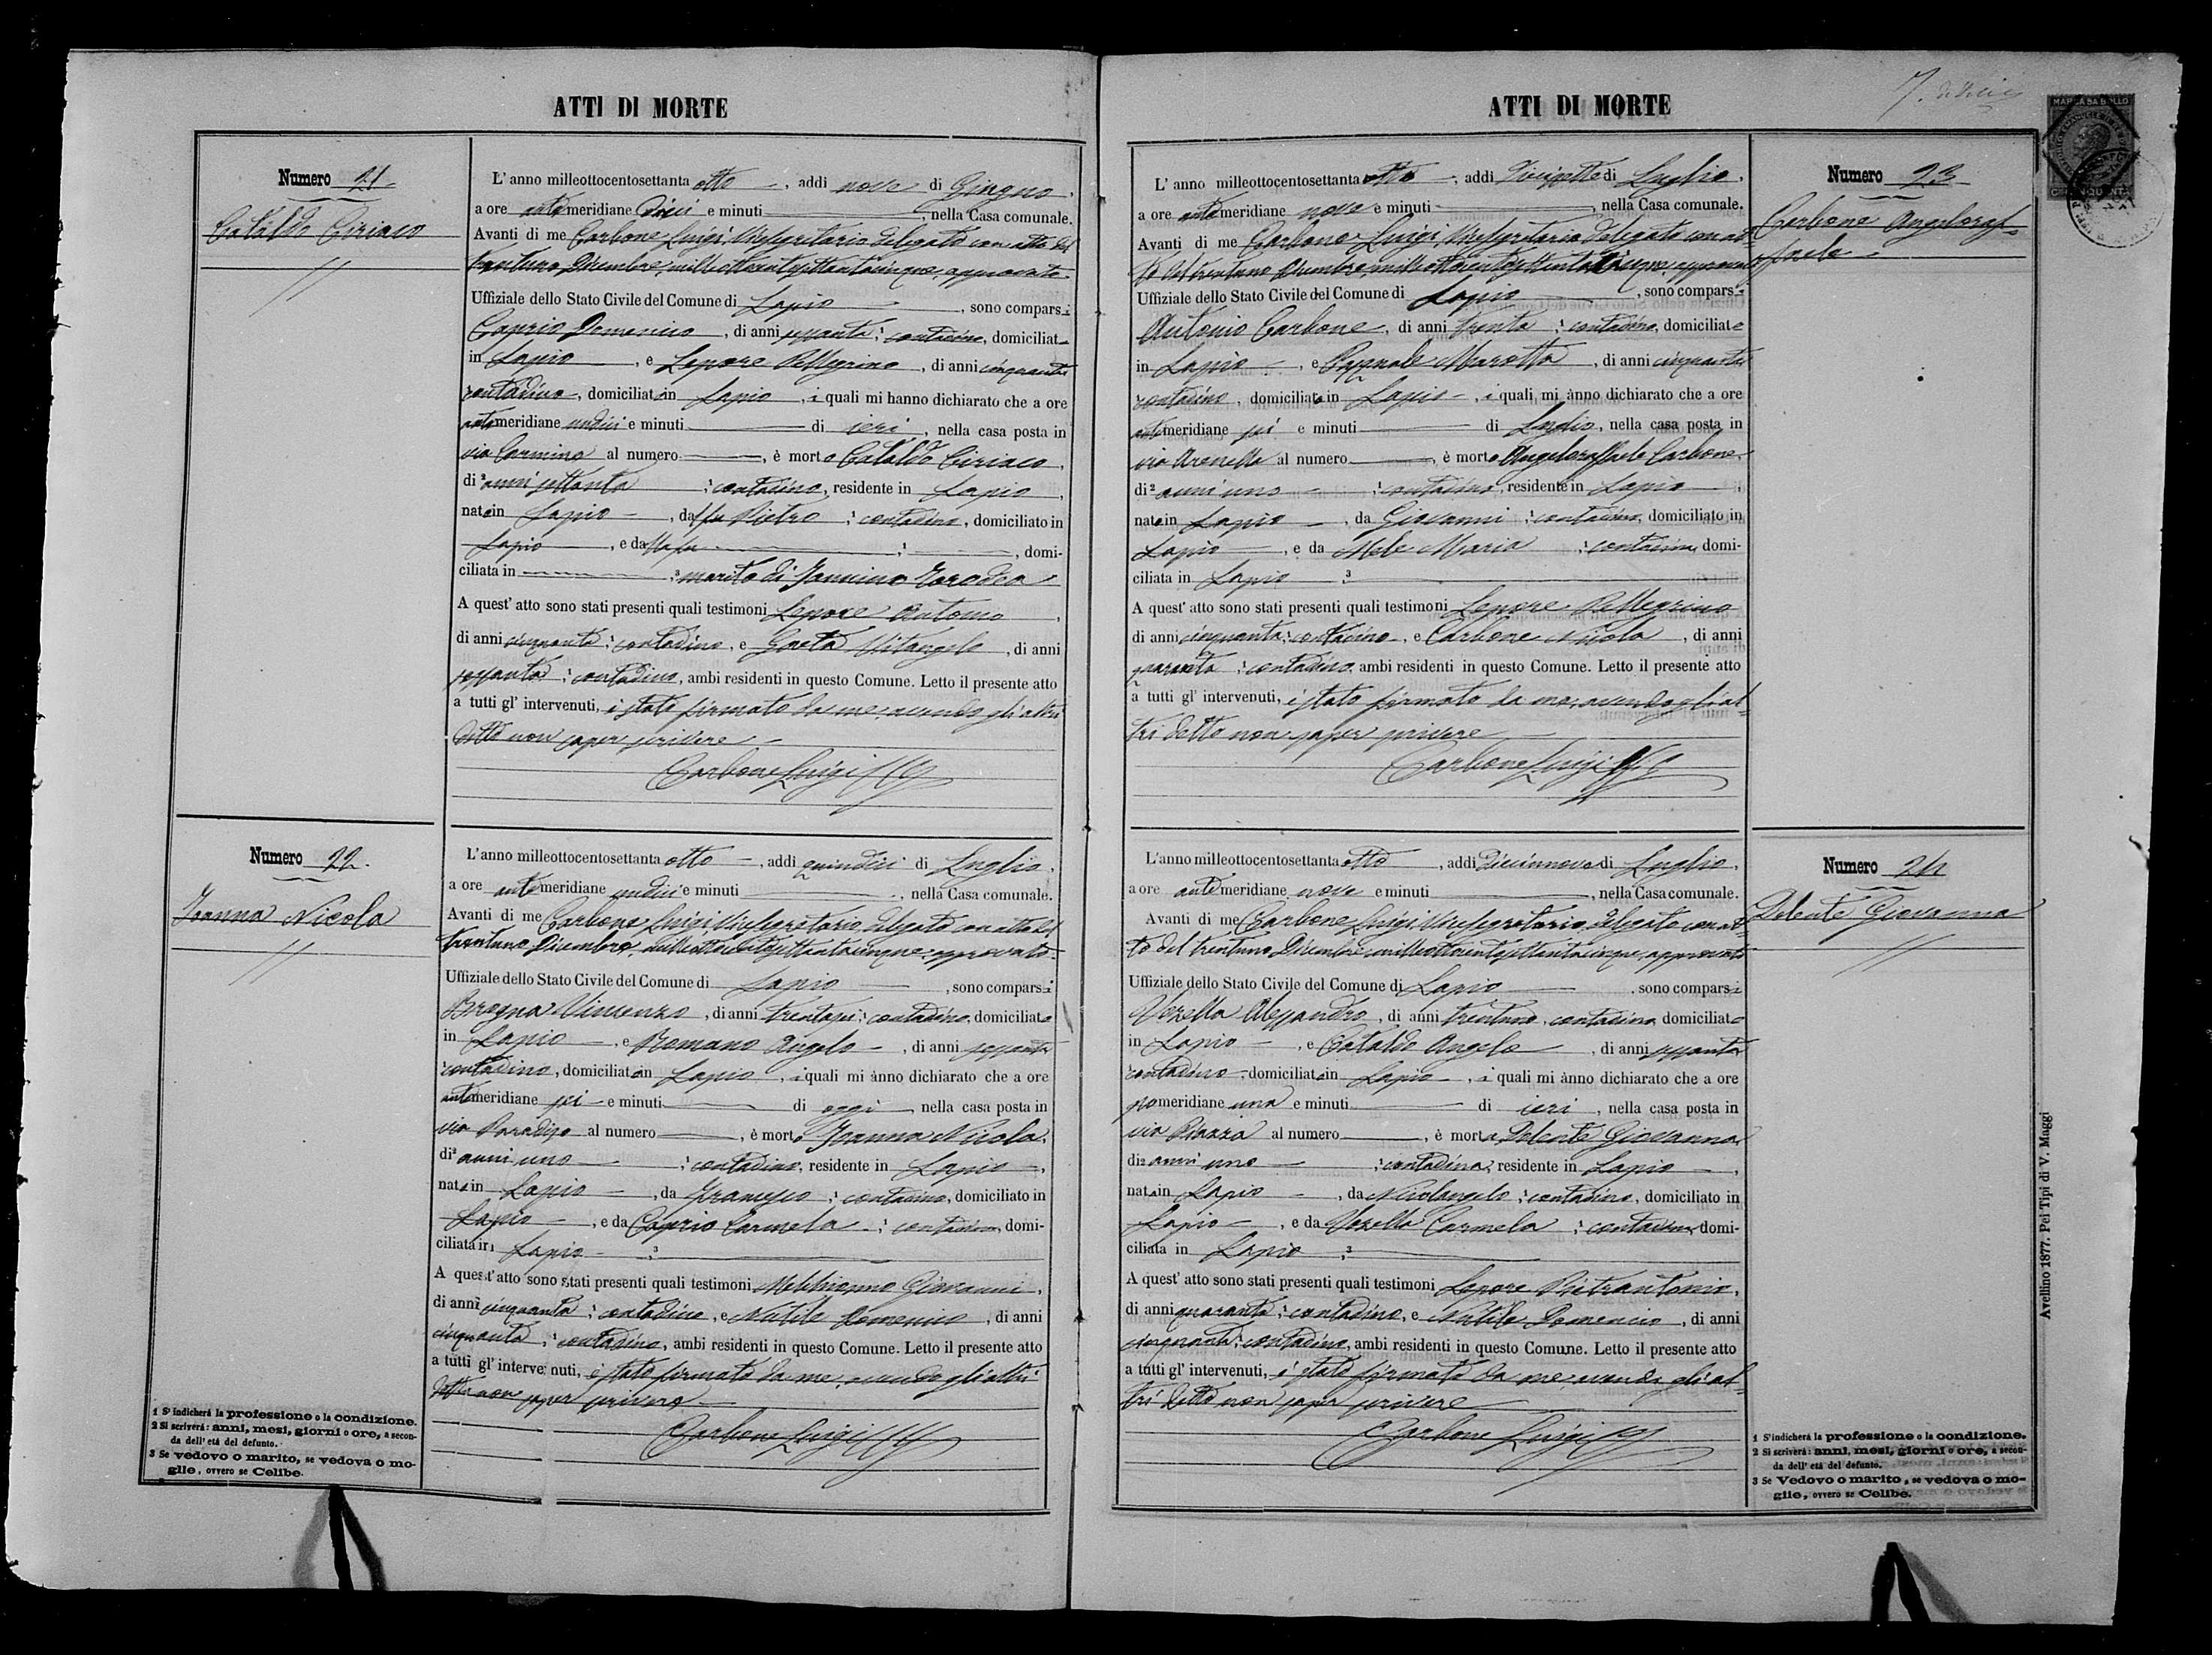 ATTI DI MORTE
Numero 21
Cataldo Ciriaco
L' anno milleottocentosettanta otto, addi nove di Giugno,
a ore antimeridiane dieci e minuti, nella Casa comunale.
Avanti di me Carbone Luigi, Vicesegretario delegato con atto del
trentuno Dicembre milleottocentosettantacinque, approvato
Uffiziale dello Stato Civile del Comune di Lapio, sono comparsi
Caprio Domenico, di anni sessanta, contadino, domiciliato
in Lapio, e Lepore Pellegrino, di anni cinquanta
contadino, domiciliato in Lapio, i quali mi hanno dichiarato che a ore
antimeridiane undici e minuti di ieri, nella casa posta in
via Carmine al numero, è morto Cataldo Ciriaco,
di 2 anni settanta, contadino, residente in Lapio,
nato in Lapio, da fu Pietro, contadino, domiciliato in
Lapio, e da, domi-
ciliata in, 3 marito di
A quest' atto sono stati presenti quali testimoni Lepore Antonio,
di anni cinquanta, contadino, e Gaeta Vitangelo, di anni
sessanta, contadino, ambi residenti in questo Comune. Letto il presente atto
a tutti gl' intervenuti, è stato firmato da me, avendo gli altri
detto non saper scrivere
Carbone Luigi
Numero 22.
Ioanna Nicola
L'anno milleottocentosettanta otto, addi quindici di Luglio,
a ore antimeridiane undici e minuti, nella Casa comunale.
Avanti di me Carbone Luigi, Vicesegretario delegato con atto del
trentuno Dicembre milleottocentosettantacinque approvato
Uffiziale dello Stato Civile del Comune di Lapio, sono comparsi
Brogna Vincenzo, di anni trentasei, contadino, domiciliato
in Lapio, e Romano Angelo, di anni sessanta
contadino, domiciliato in Lapio, i quali mi ànno dichiarato che a ore
antimeridiane sei e minuti di oggi, nella casa posta in
via Paradiso al numero, è morto Ioanna Nicola,
di 2 anni uno, contadino, residente in Lapio,
nato in Lapio, da Francesco, contadino, domiciliato in
Lapio, e da Caprio Carmela, contadina, domi-
ciliata in Lapio, 3
A quest' atto sono stati presenti quali testimoni Melchionno Giovanni,
di anni cinquanta, contadino, e Nutile Domenico, di anni
cinquanta, contadino, ambi residenti in questo Comune. Letto il presente atto
a tutti gl' intervenuti, è stato firmato da me, avendo gli altri
detto non saper scrivere
Carbone Luigi
1 S' indicherà la professione o la condizione.
2 Si scriverà: anni, mesi, giorni o ore, a secon-
da dell' età del defunto.
3 Se vedovo o marito, se vedova o mo-
glie, ovvero se Celibe.
ATTI DI MORTE
7.
MARCA DA BOLLO
Numero 23
Carbone Angeloraf-
faele
L' anno milleottocentosettanta otto, addi diciassette di Luglio,
a ore antimeridiane nove e minuti, nella Casa comunale.
Avanti di me Carbone Luigi, Vicesegretario delegato con at-
to del trentuno Dicembre milleottocentosettantacinque, approvato
Uffiziale dello Stato Civile del Comune di Lapio, sono comparsi
Antonio Carbone, di anni trenta, contadino, domiciliato
in Lapio, e Pasquale Marotta, di anni cinquanta
contadino, domiciliato in Lapio, i quali mi ànno dichiarato che a ore
antimeridiane sei e minuti di Luglio, nella casa posta in
via Arenella al numero, è morto Angeloraffaele Carbone,
di 2 anni uno, contadino, residente in Lapio,
nato in Lapio, da Giovanni, contadino, domiciliato in
Lapio, e da Mele Maria, contadina, domi-
ciliata in Lapio, 3
A quest' atto sono stati presenti quali testimoni Lepore Pellegrino
di anni cinquanta, contadino, e Carbone Nicola, di anni
quaranta, contadino, ambi residenti in questo Comune. Letto il presente atto
a tutti gl' intervenuti, è stato firmato da me, avendo gli al-
tri detto non saper scrivere
Carbone Luigi
Numero 24
Delente Giovanna
L'anno milleottocentosettanta otto, addi diciannove di Luglio,
a ore antimeridiane nove e minuti, nella Casa comunale.
Avanti di me Carbone Luigi, Vicesegretario delegato con at-
to del trentuno Dicembre milleottocentosettantacinque, approvato
Uffiziale dello Stato Civile del Comune di Lapio, sono comparsi
Vozella Alessandro, di anni trentuno, contadino, domiciliato
in Lapio, e Cataldo Angelo, di anni sessanta
contadino, domiciliato in Lapio, i quali mi ànno dichiarato che a ore
pomeridiane una e minuti di ieri, nella casa posta in
via Piazza al numero, è morta Delente Giovanna
di 2 anni uno, contadina, residente in Lapio,
nata in Lapio, da Nicolangelo, contadino, domiciliato in
Lapio, e da Vozella Carmela, contadina, domi-
ciliata in Lapio, 3
A quest' atto sono stati presenti quali testimoni Lepore Pietrantonio,
di anni quaranta, contadino, e Nutile Domenico, di anni
cinquanta, contadino, ambi residenti in questo Comune. Letto il presente atto
a tutti gl' intervenuti, è stato firmato da me, avendo gli al-
tri detto non saper scrivere
Carbone Luigi
1 S'indicherà la professione o la condizione.
2 Si scriverà: anni, mesi, giorni o ore, a secon-
da dell' età del defunto.
3 Se Vedovo o marito, se vedova o mo-
glie, ovvero se Celibe.
Avellino 1877. Pei Tipi di V. Maggi